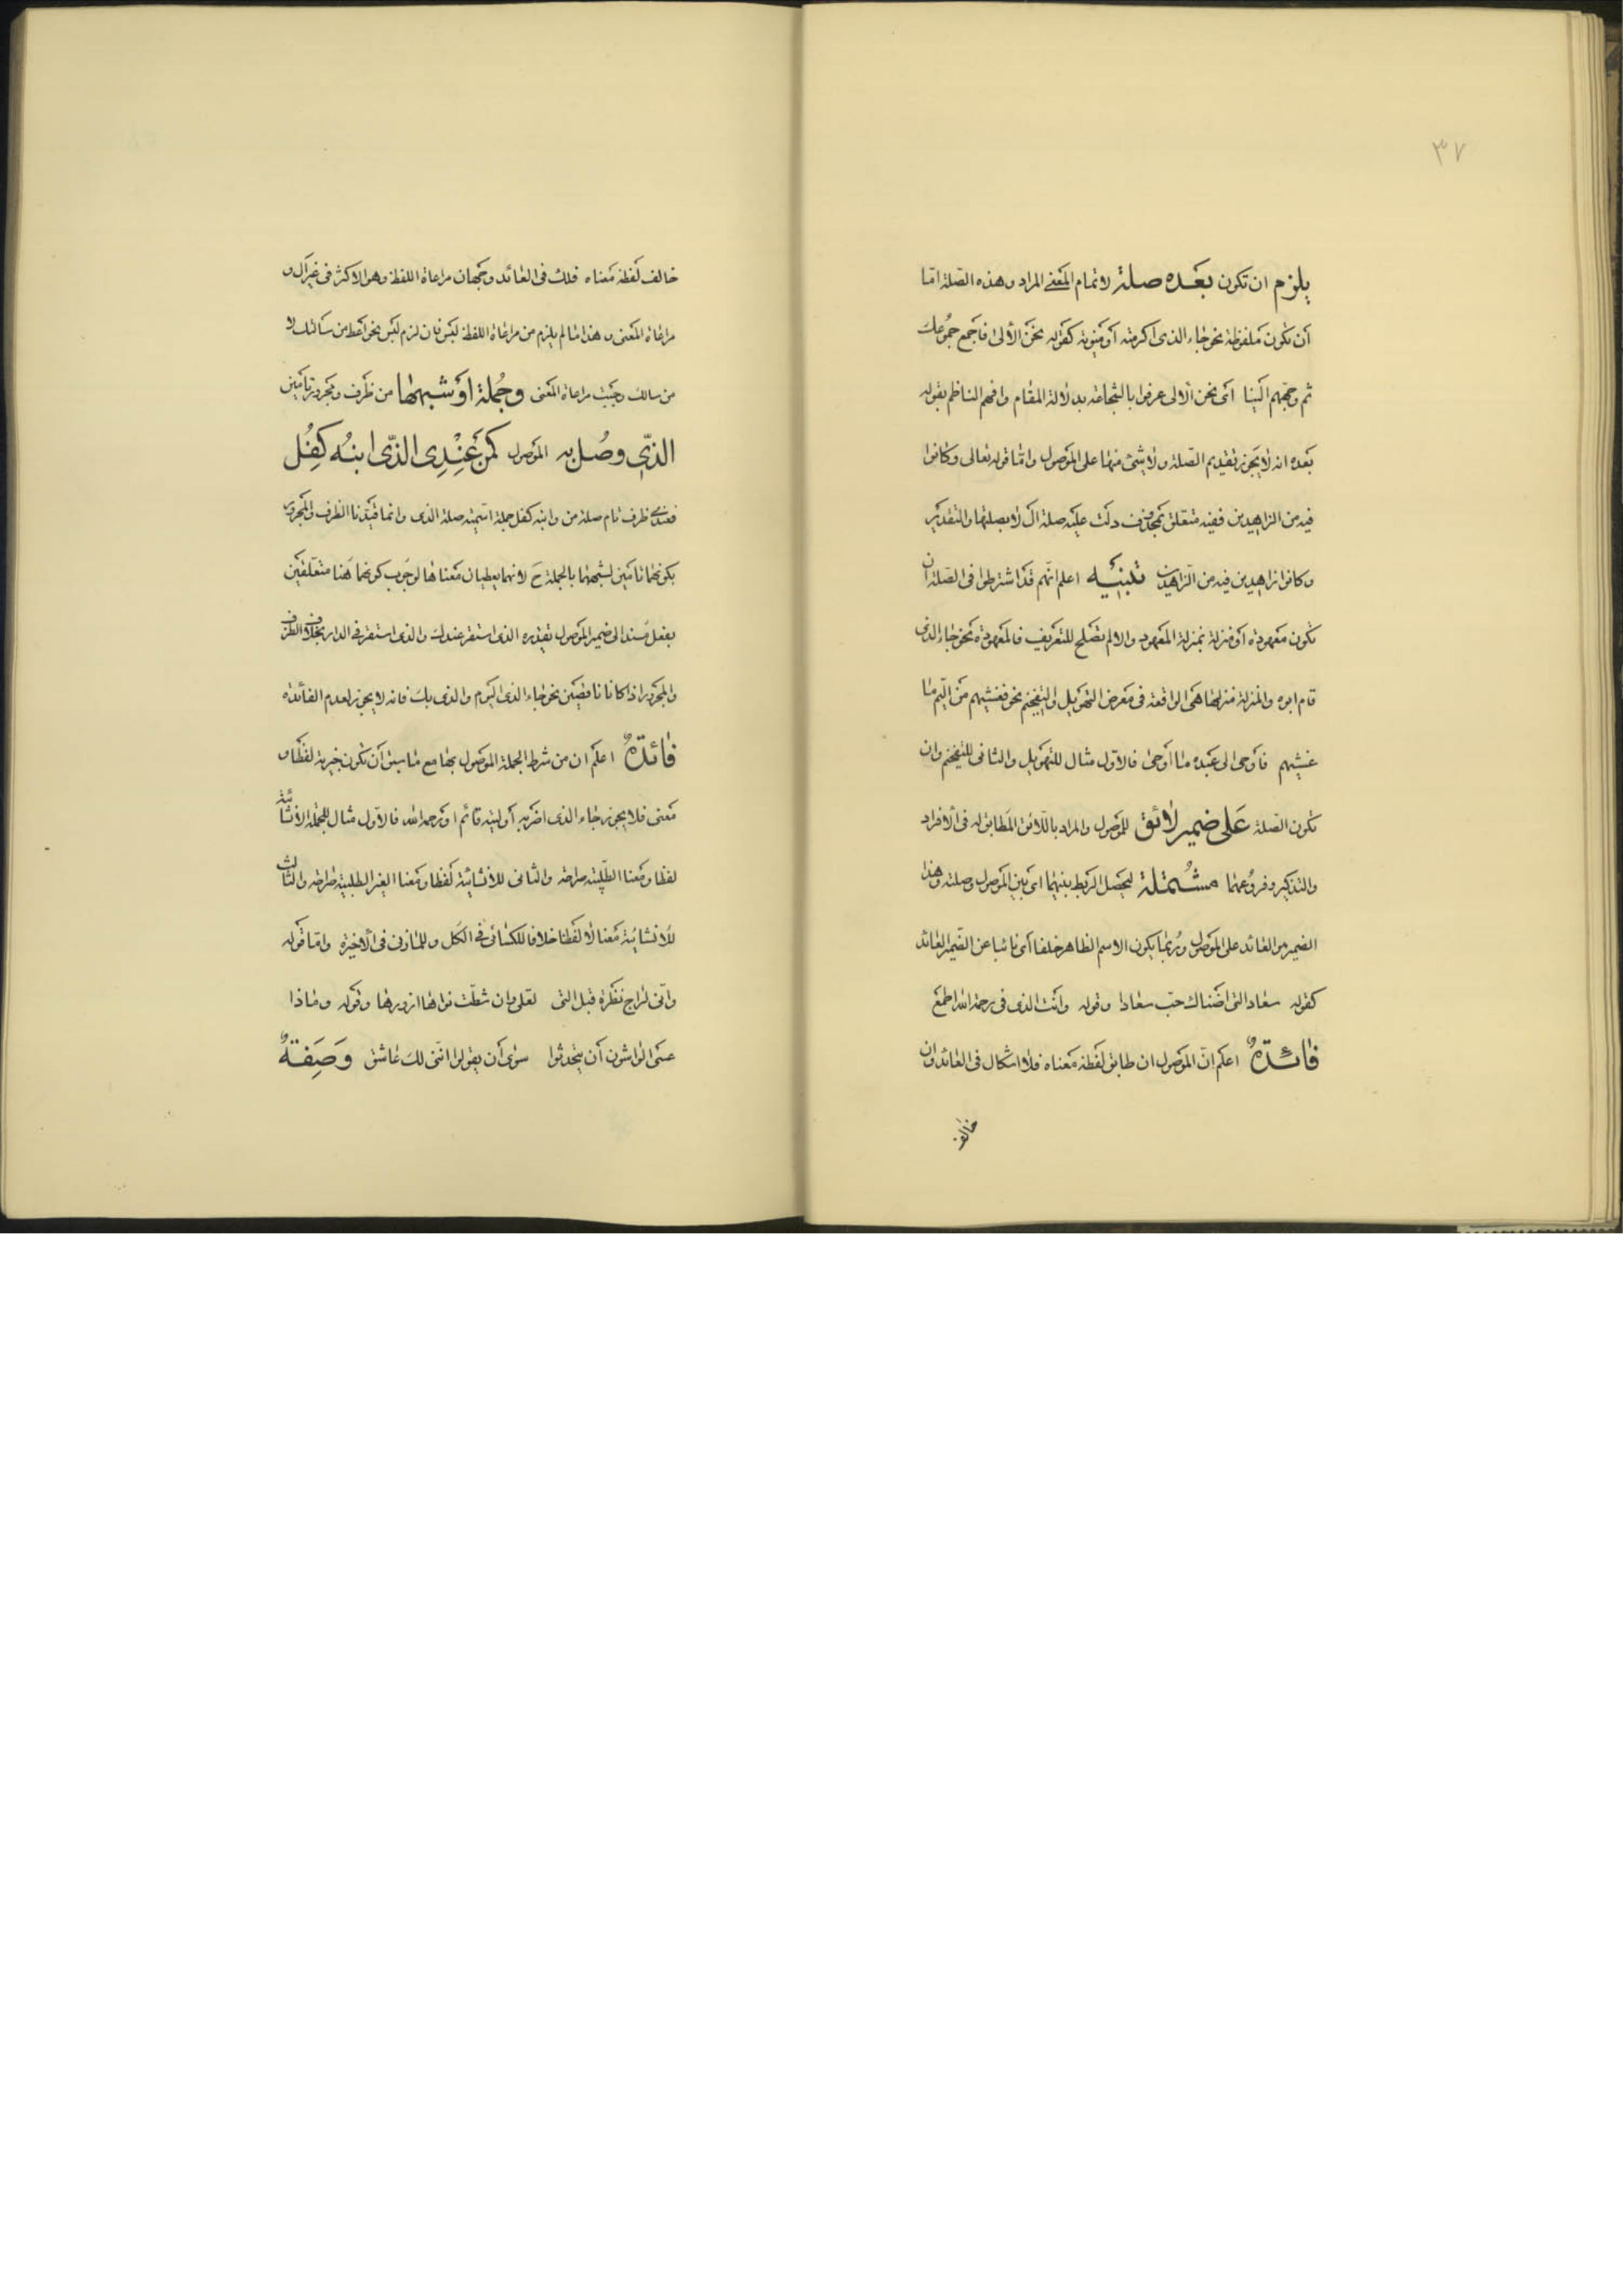 ٣٧
يلزم ان تكون بعده صلة لاتمام المعنى المراد وهذه الصلة امّا
أن تكون ملفوظة نحو جاء الذى اكرمته أو منوية كقوله نحن الألى فاجمع جموعك
ثم وجّههم الينا أى نحن الألى عرفوا بالشجاعة بدلالة المقام وافهم الناظم بقوله
بعده انه لا يجوز تقديم الصلة ولا شئ منها على الموصول وامّا قوله تعالى وكانوا
فيه من الزاهدين ففيه متعلق بمحذوف دلت عليه صلة ال لا بصلتها والتقدير
وكانوا زاهدين فيه من الزاهدين تنبيه اعلم انهم قد اشترطوا فى الصلة ان
تكون معهودة أو منزلة بمنزلة المعهود والا لم تصلح للتعريف فالمعهودة نحو جاء الذى
قام ابوه والمنزلة منزلتها هى الواقعة فى معرض التهويل والتفخيم نحو فغشيهم من اليم ما
غشيهم فأوحى الى عبده ما أوحى فالاول مثال للتهويل والثانى للتفخيم وان
تكون الصلة على ضمير لائق للموصول والمراد باللائق المطابق له فى الأفراد
والتذكير وفروعهما مشتملة ليحصل الربط بينهما اى بين الموصول وصلته وهذا
الضمير هو العائد على الموصول وربما يكون الاسم الظاهر خلفا أى نائبا عن الضمير العائد
كقوله سعاد التى اضناك حبّ سعادا وقوله وانت الذى فى رحمة الله اطمع
فائدةٌ اعلم انّ الموصول ان طابق لفظه معناه فلا اشكال فى العائد وان
خالف
خالف لفظه معناه فلك فى العائد وجهان مراعاة اللفظ وهو الاكثر فى غير ال و
مراعاة المعنى وهذا ما لم يلزم من مراعاة اللفظ لبس فان لزم لبس نحو اعط من سألتك لا
من سالك وجبت مراعاة المعنى وجُملة اوشبهها من ظرف ومجرور تامين
الذى وصُل به الموصول كمن عِنْدِى الذى ابنُه كفِل
فعندى ظرف تام صلة من وابنه كفل جملة اسمية صلة الذى وانما قيدنا الظرف والمجرور
بكونهما تامين لشبههما بالجملة ح لانهما يعطيان معناها لوجوب كونهما هنا متعلقين
بفعل مسند الى ضمير الموصول تقديره الذى استقر عندك والذى استقر فى الدار بخلاف الظرف
والمجرور اذا كانا ناقصين نحو جاء الذى اليوم والذى بك فانه لا يجوز لعدم الفائدة
فائدةٌ اعلم ان من شرط الجملة الموصول بها مع ما سبق أن تكون خبرية لفظا و
معنى فلا يجوز جاء الذى اضربه أو ليته قائم او رحمه الله فالاول مثال للجملة الانشائية
لفظا ومعنا الطلبية صراحة والثانى للانشائية لفظا ومعنا الغير الطلبية صراحة والثالث
للانشائية معنا لا لفظا خلافا للكسائى فى الكل وللمازنى فى الأخيرة وامّا قوله
وانّى لراج نظرة قبل التى لعلى وان شطّت نواها ازورها وقوله وماذا
عسى الواشون أن يتحدثوا سوى أن يقولوا انّنى لك عاشق وَصَفةٌ